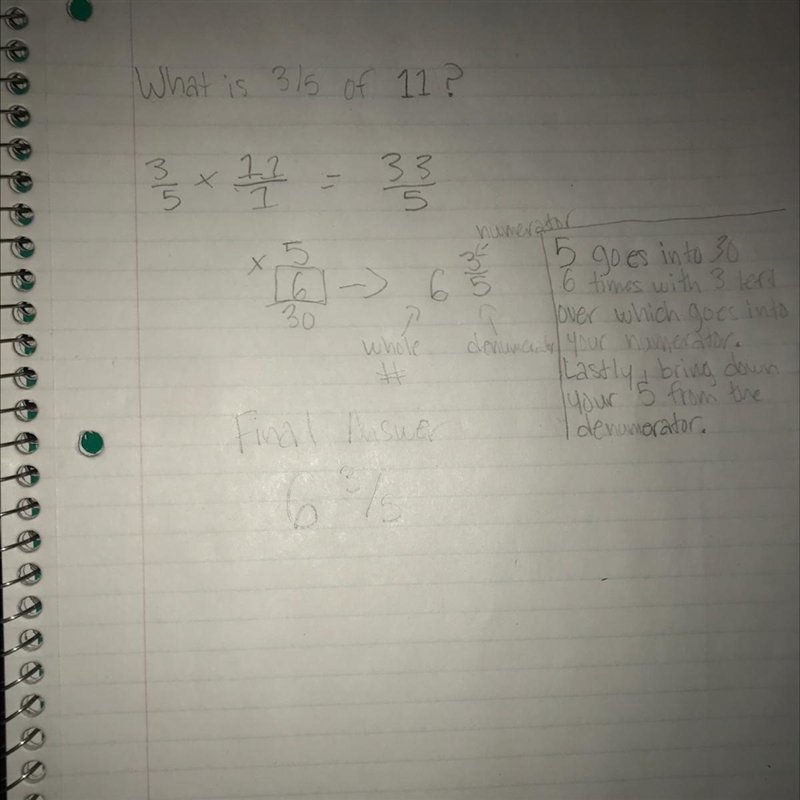 What is 3/5 of 11?
3/5 × 11/1 = 33/5
× 5
6
30
→ 6 3/5
numerator
whole
#
5 goes into 30
6 times with 3 left
over which goes into
your numerator.
Lastly, bring down
your 5 from the
denumerator.
Final Answer
6 3/5